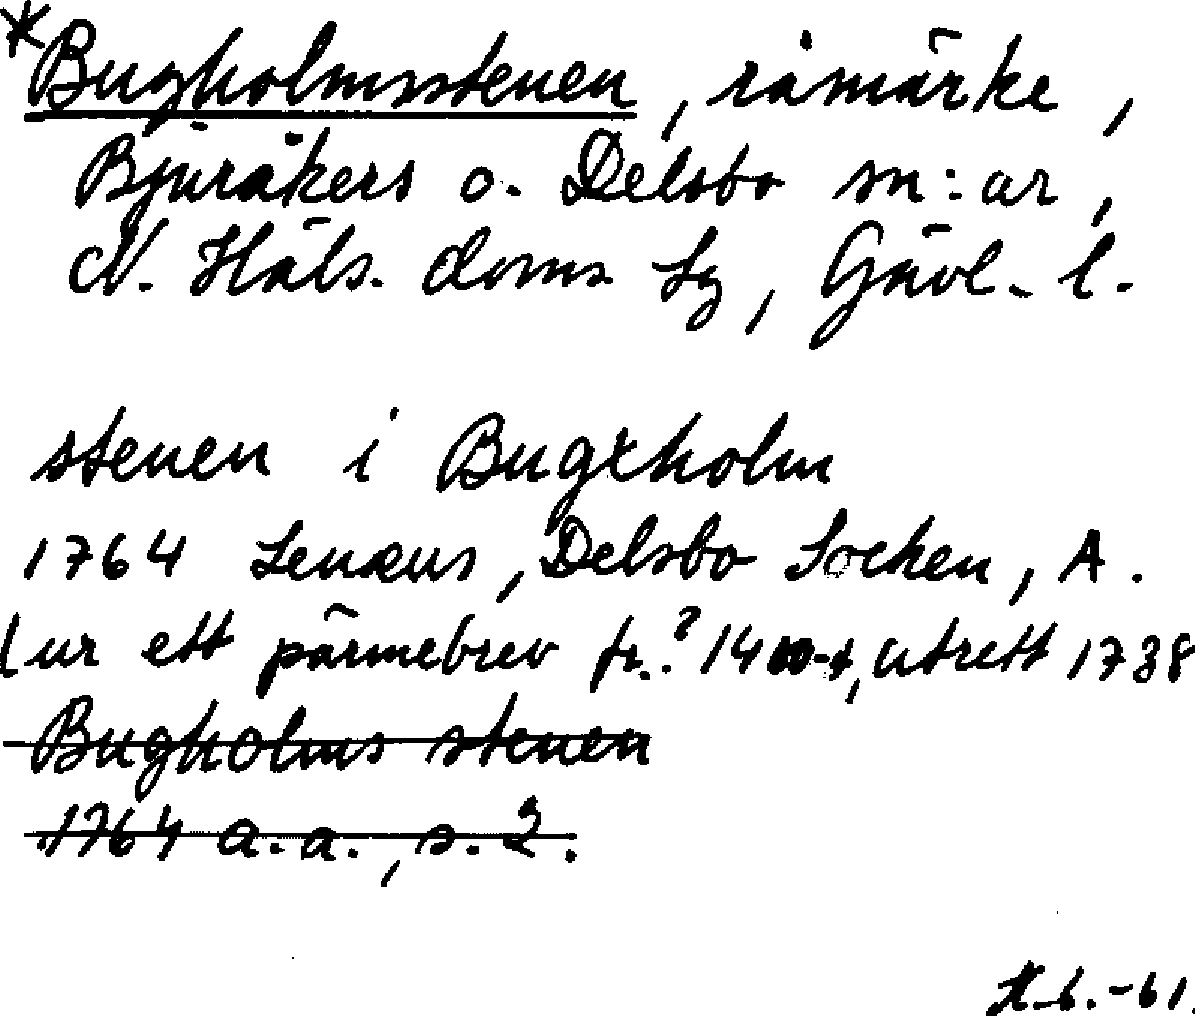 *Bugholmsstenen, råmärke,
Bjuråkers o. Delsbo sn:ar,
N. Häls. doms sg, Gävl. l.
stenen i Bugxholm
1764 Lenæus, Delsbo Socken, A.
(ur ett pärmebrev fr.? 1400-t, utrett 1738
Bugholms stenen
1764 a.a., s. 2.
-61.